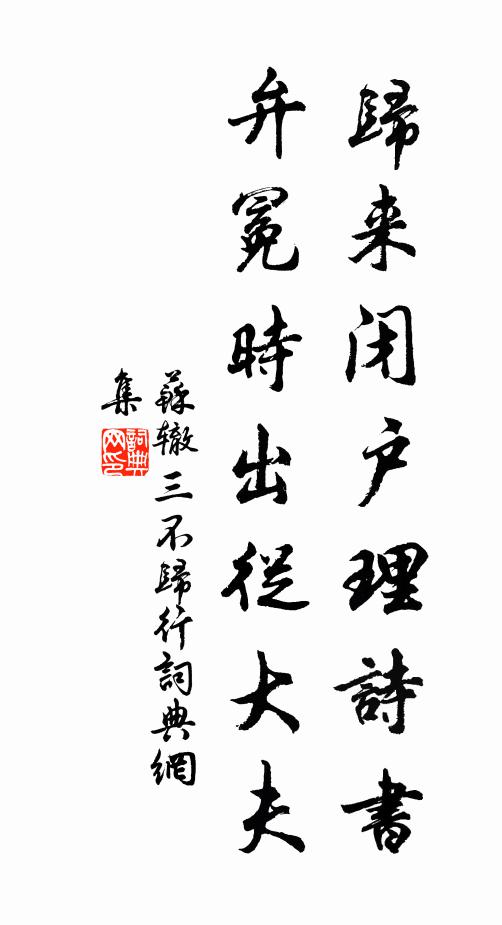 歸来闭户理詩書
弁冕時出從大夫
蘇辙三不歸行詞典網
集
詞典网印